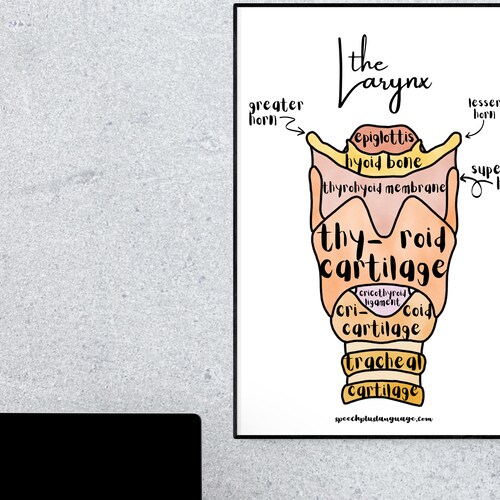 the
Larynx
greater
horn
lesser
horn
epiglottis
hyoid bone
thyrohyoid membrane
thy- roid
cartilage
cricothyroid
ligament
cri- coid
cartilage
tracheal
cartilage
speechpluslanguage.com